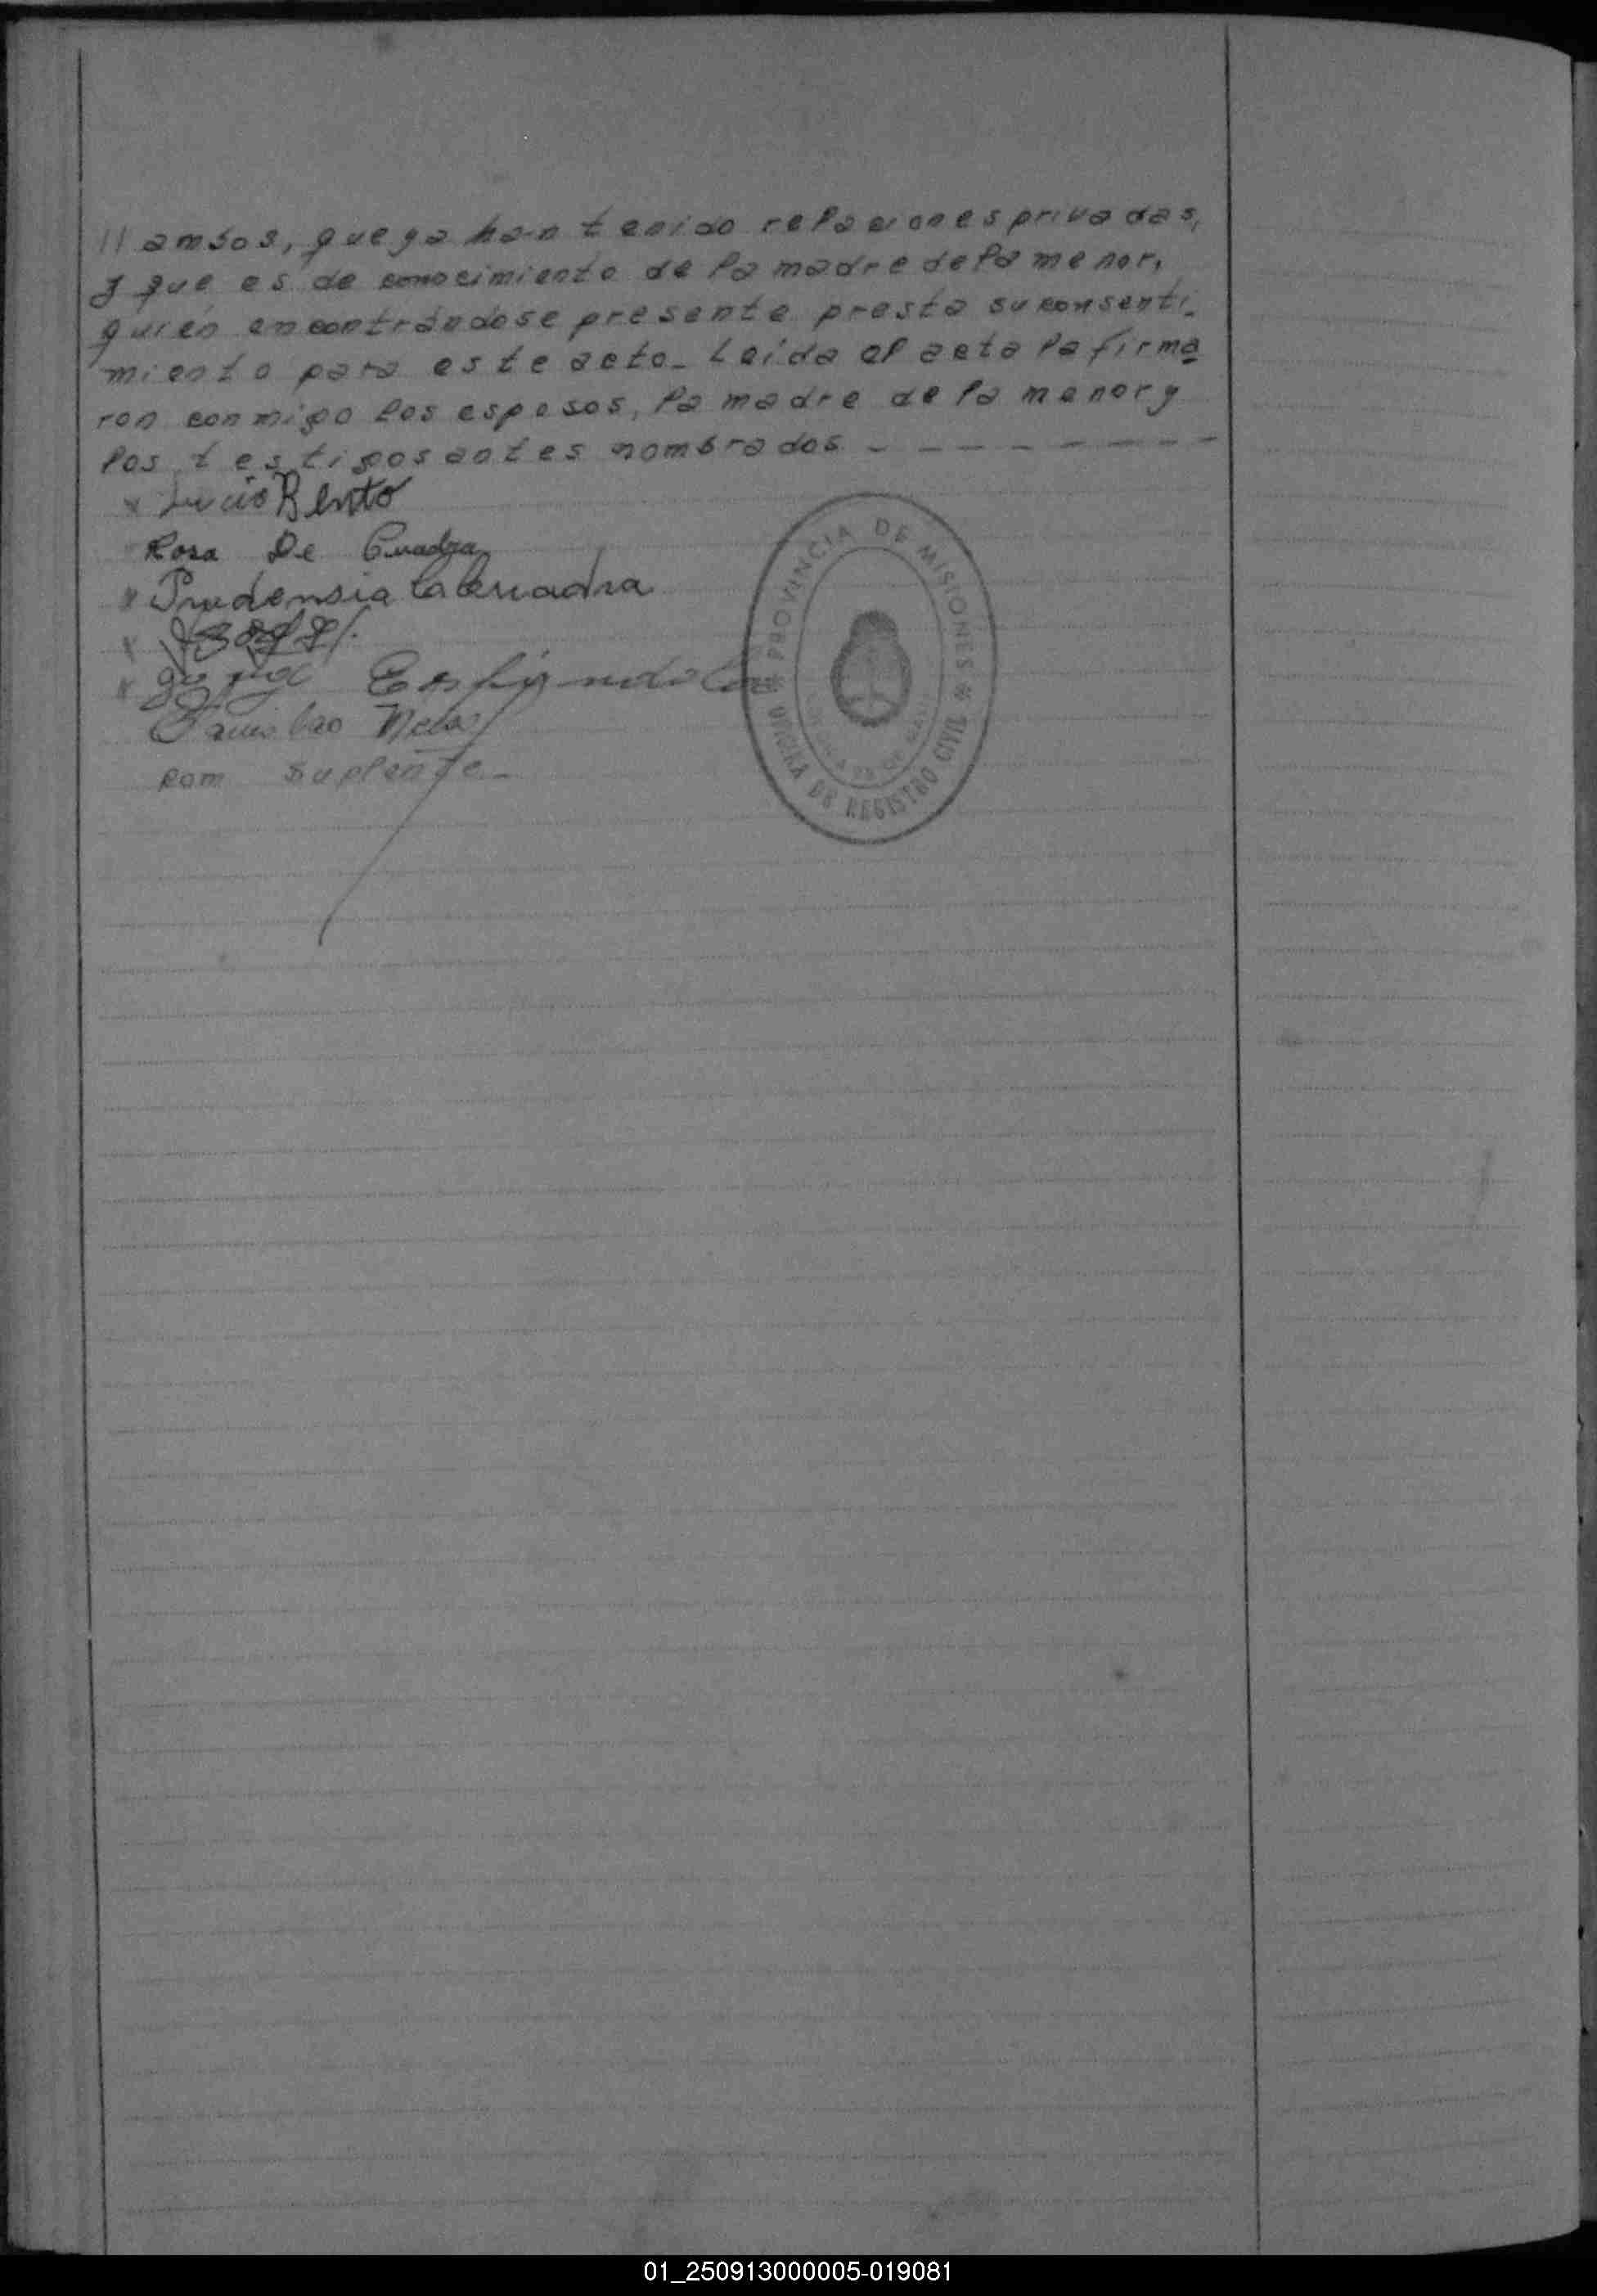 // ambos, que ya han tenido relaciones privadas,
y que es de conocimiento de la madre de la menor,
quién encontrándose presente presta su consenti-
miento para este acto_ Leída el acta la firma
ron conmigo los esposos, la madre de la menor y
los testigos antes nombrados - - - - - - - -
x Lucio Bento
Rosa De Cuadra
x Prudensia la Cuadra
x
x Jorge
Com Suplente_
PROVINCIA DE MISIONES
OFICINA DE REGISTRO CIVIL
01_250913000005-019081